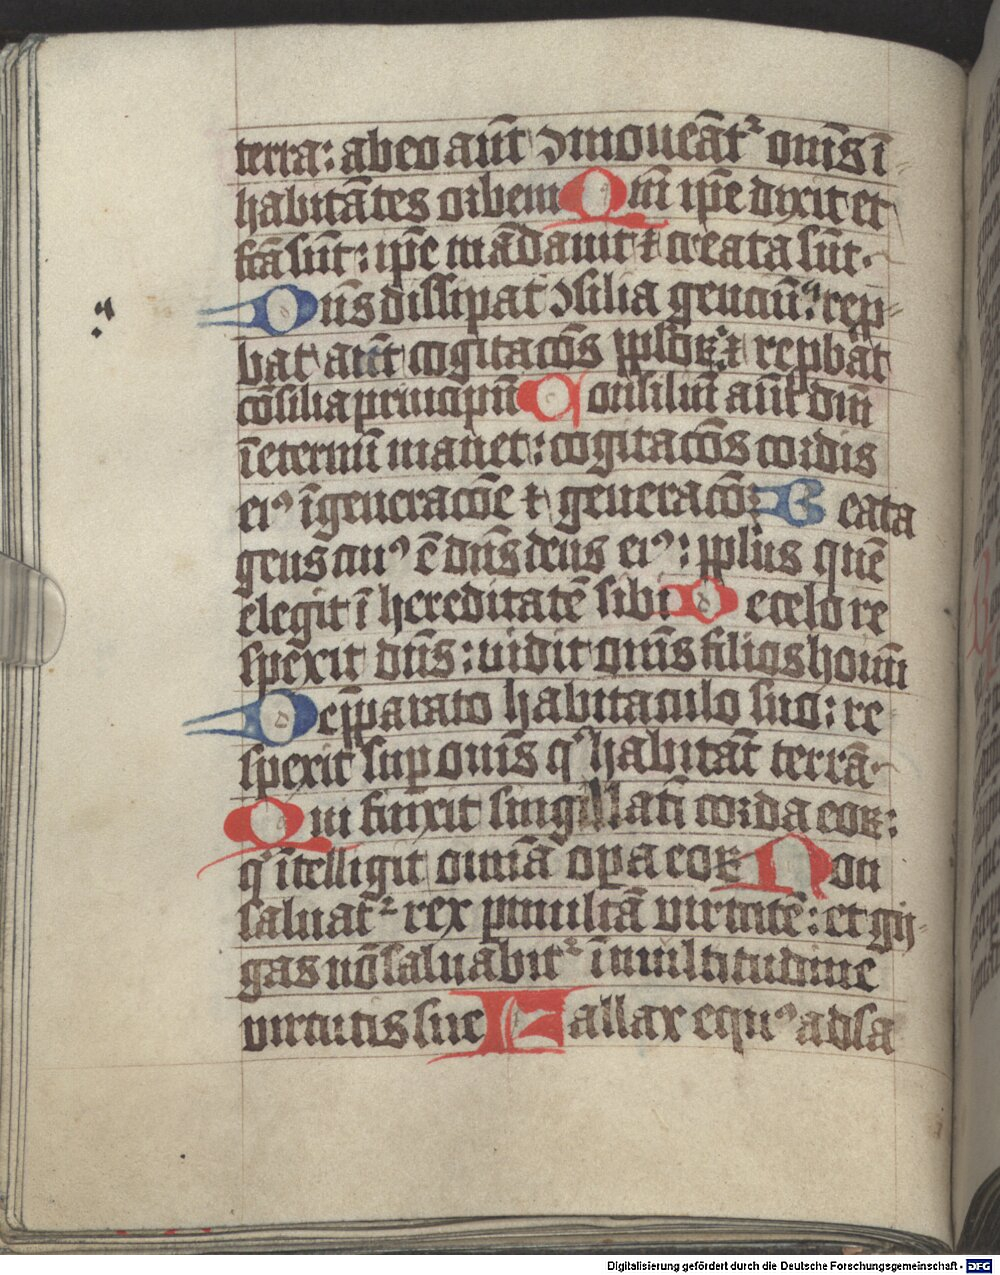 terra: ab eo aūt ꝯmoueāt᷑ om̄s ī
habitātes orbem Qm̄ ip̄e dixit et
fc̄a sūt: ip̄e mādauit ⁊ creata sūt.
Dn̄s dissipat ꝯsilia genciū: rep̱
bat aūt cogitacōs pplōꝝ ⁊ rep̱bat
cōsilia principū Consiliū aūt dn̄i
ī eternū manet: cogitacōs cordis
eiꝰ ī generacōe ⁊ generacōꝫ Beata
gens cuiꝰ ē dn̄s deus eiꝰ: pplūs quē
elegit ī hereditatē sibi De celo re
spexit dn̄s: uidit om̄s filios homī
De p̄parato habitaculo suo: re
spexit suꝑ om̄s qͥ habitāt terrā.
Qui finxit singillatī corda eoꝝ:
qͥ ītelligit om̄ia oꝑa eoꝝ Non
saluat᷑ rex ꝑ multā virtutē: et gy
gas nō saluabit᷑ ī multitudine
virtutis sue Fallax equꝰ ad sa
Digitalisierung gefördert durch die Deutsche Forschungsgemeinschaft - DFG